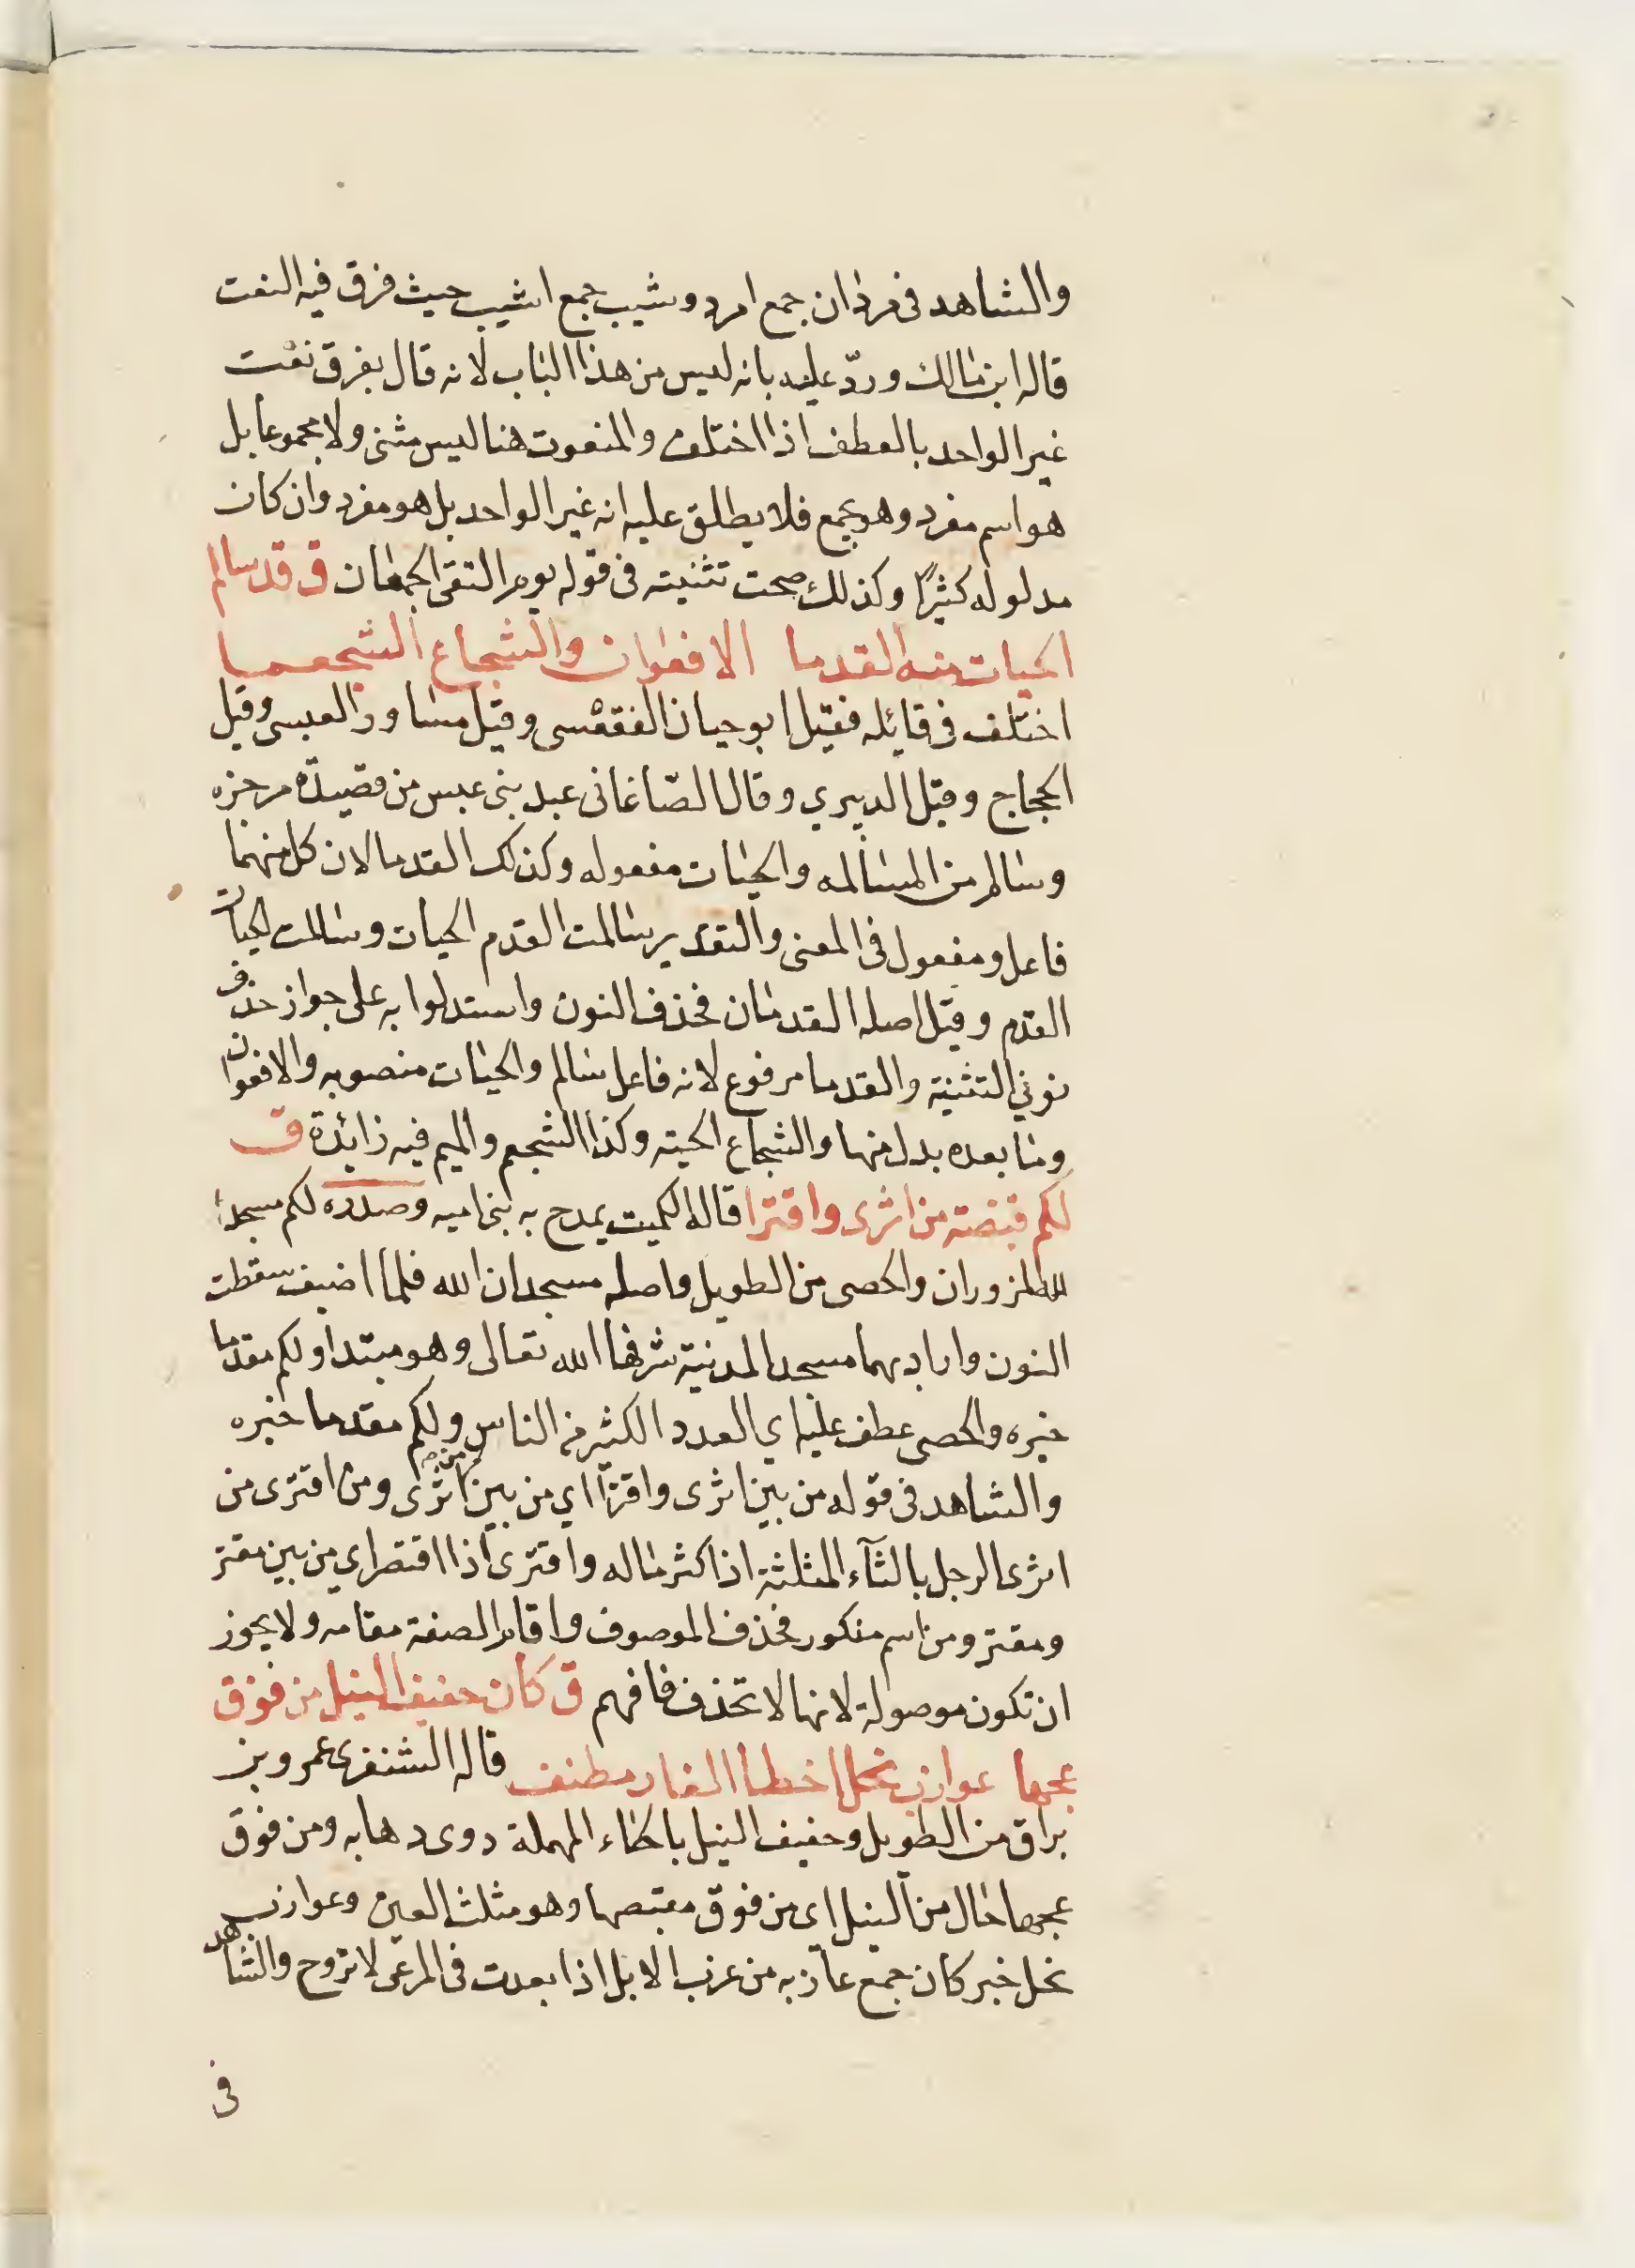 والشاهد فى مردان جمع امرد وشيب جمع اشيب حيث فرق فيه النعت
قاله ابن مالك وردّ عليه بانه ليس من هذا الباب لانه قال يفرق نعت
غير الواحد بالعطف اذا اختلف والمنعوت هنا ليس مثنى ولا مجموعا بل
هو اسم مفرد وهو جمع فلا يطلق عليه انه غير الواحد بل هو مفرد وان كان
مدلوله كثيرًا وكذلك صحت تثنيته فى قوله يوم التقى الجمعان ق قد سالم
الحيات منه القدما الافعوان والشجاع الشجعما
اختلف فى قايله فقيل ابو حيان الفقعسى وقيل مساور العبسى وقيل
العجاج وقيل الدبيري وقال الصّاغانى عبد بنى عبس من قصيدة مرجزه
وسالم من المسالمه والحيات مفعوله وكذلك القدما لان كل منهما
فاعل ومفعول فى المعنى والتقدير سالمت القدم الحيات وسالمت الحيات
القدم وقيل اصله القدمان فحذف النون واستدلوا به على جواز حذف
نوني التثنية والقدما مرفوع لانه فاعل سالم والحيات منصوبه والافعوان
وما بعده بدل منها والشجاع الحيته وكذا الشجعم والميم فيه زائدة ق
لكم قبضته من اثرى واقترا قاله الكميت يمدح به بنى اميه وصدره لكم مسجدا
لله المزوران والحصى من الطويل واصله مسجدان الله فلما اضيف سقطت
النون واراد بهما مسجد المدنية شرفها الله تعالى وهو مبتدا ولكم مقدما
خبره والحصى عطف عليه اي العدد الكثير من الناس ولكم مقدما خبره
والشاهد فى قوله من بين اثرى واقترا اي من بين من اثرى ومن اقترى من
اثرى الرجل بالثآء المثلثة اذا كثر ماله واقترى اذا اقتصر اي من بين مقتر
ومقتر ومن اسم منكور فحذف الموصوف واقام الصفة مقامه ولا يجوز
ان تكون موصولة لانها لا تحذف فافهم ق كان حفيف النبل من فوق
عجها عوازب نحل اخطا الغار مطنف قاله الشنفرى عمرو بن
براق من الطويل وحفيف النبل بالحاء المهملة دوى دهابه ومن فوق
عجها حال من النبل اى من فوق مقبصها وهو مثلث العين وعوازب
نحل خبر كان جمع عازبه من عزب الابل اذا بعدت فى المرعى لا تروح والشاهد
فى